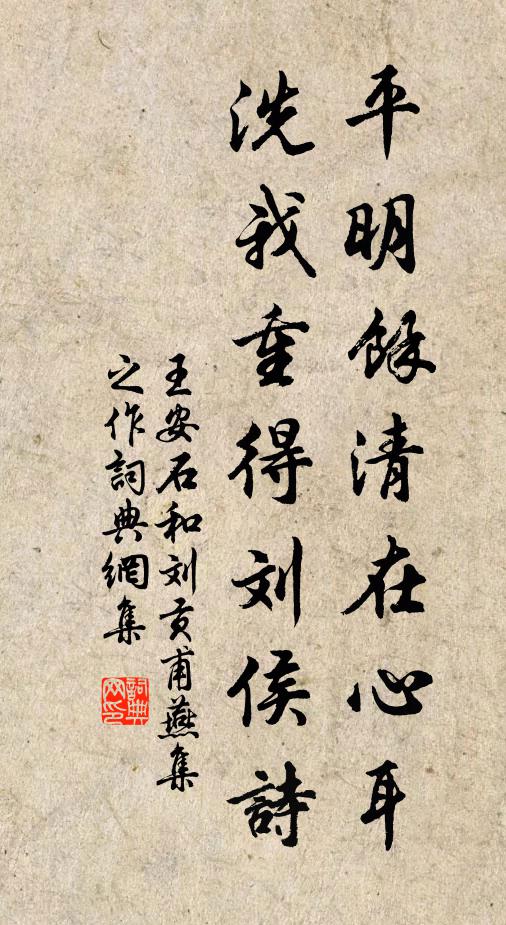 平明餘清在心耳
洗我重得刘侯詩
王安石和刘贡甫燕集
之作詞典網集
詞典
网印